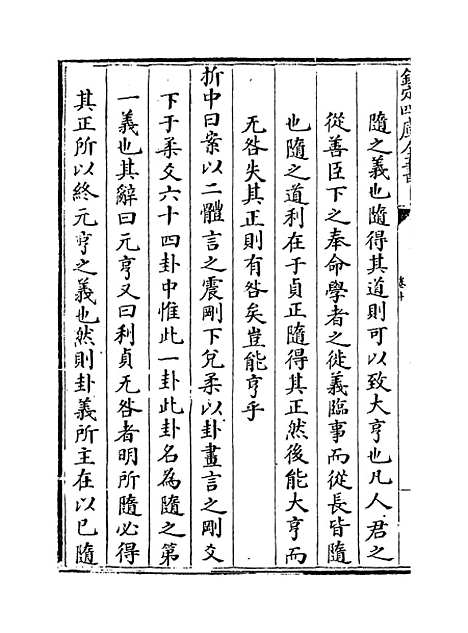 欽定四庫全書
卷十
隨之義也隨得其道則可以致大亨也凡人君之
從善臣下之奉命學者之徙義臨事而從長皆隨
也隨之道利在于貞正隨得其正然後能大亨而
无咎失其正則有咎矣豈能亨乎
折中曰案以二體言之震剛下兌柔以卦畫言之剛爻
下于柔爻六十四卦中惟此一卦此卦名為隨之第
一義也其辭曰元亨又曰利貞无咎者明所隨必得
其正所以終元亨之義也然則卦義所主在以已隨